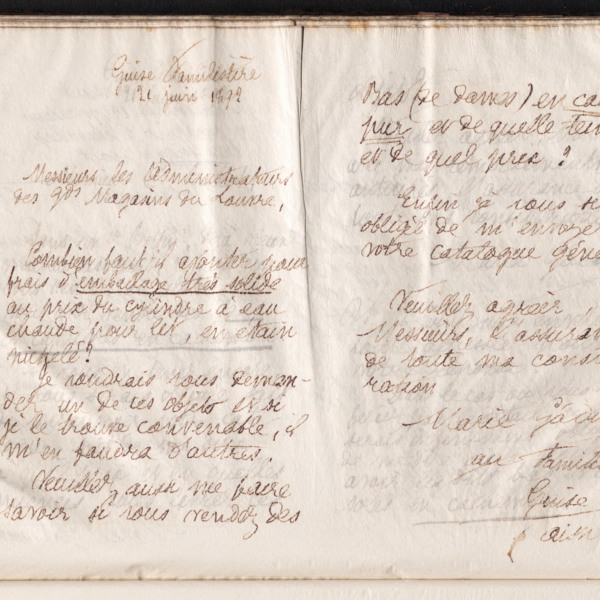 Guise Familistère
21 juin 1892
Messieurs les Administrateurs
des gds Magasins du Louvre,
Combien faut-il ajouter pour
frais d'emballage très solide
au prix du cylindre à eau
chaude pour lit, en étain
nickelé?
Je voudrais vous deman-
der un de ces objets et si
je le trouve convenable, il
m'en faudra d'autres.
Veuillez aussi me faire
savoir si vous vendez des
Bas (de dames) en
pur et de quelle
et de quel prix?
Enfin je vous
obligée de m'envoye
votre catalogue géné
Veuillez agréer,
Messieurs, l'assuran
de toute ma consi
ration
Marie
au Famili
Guise